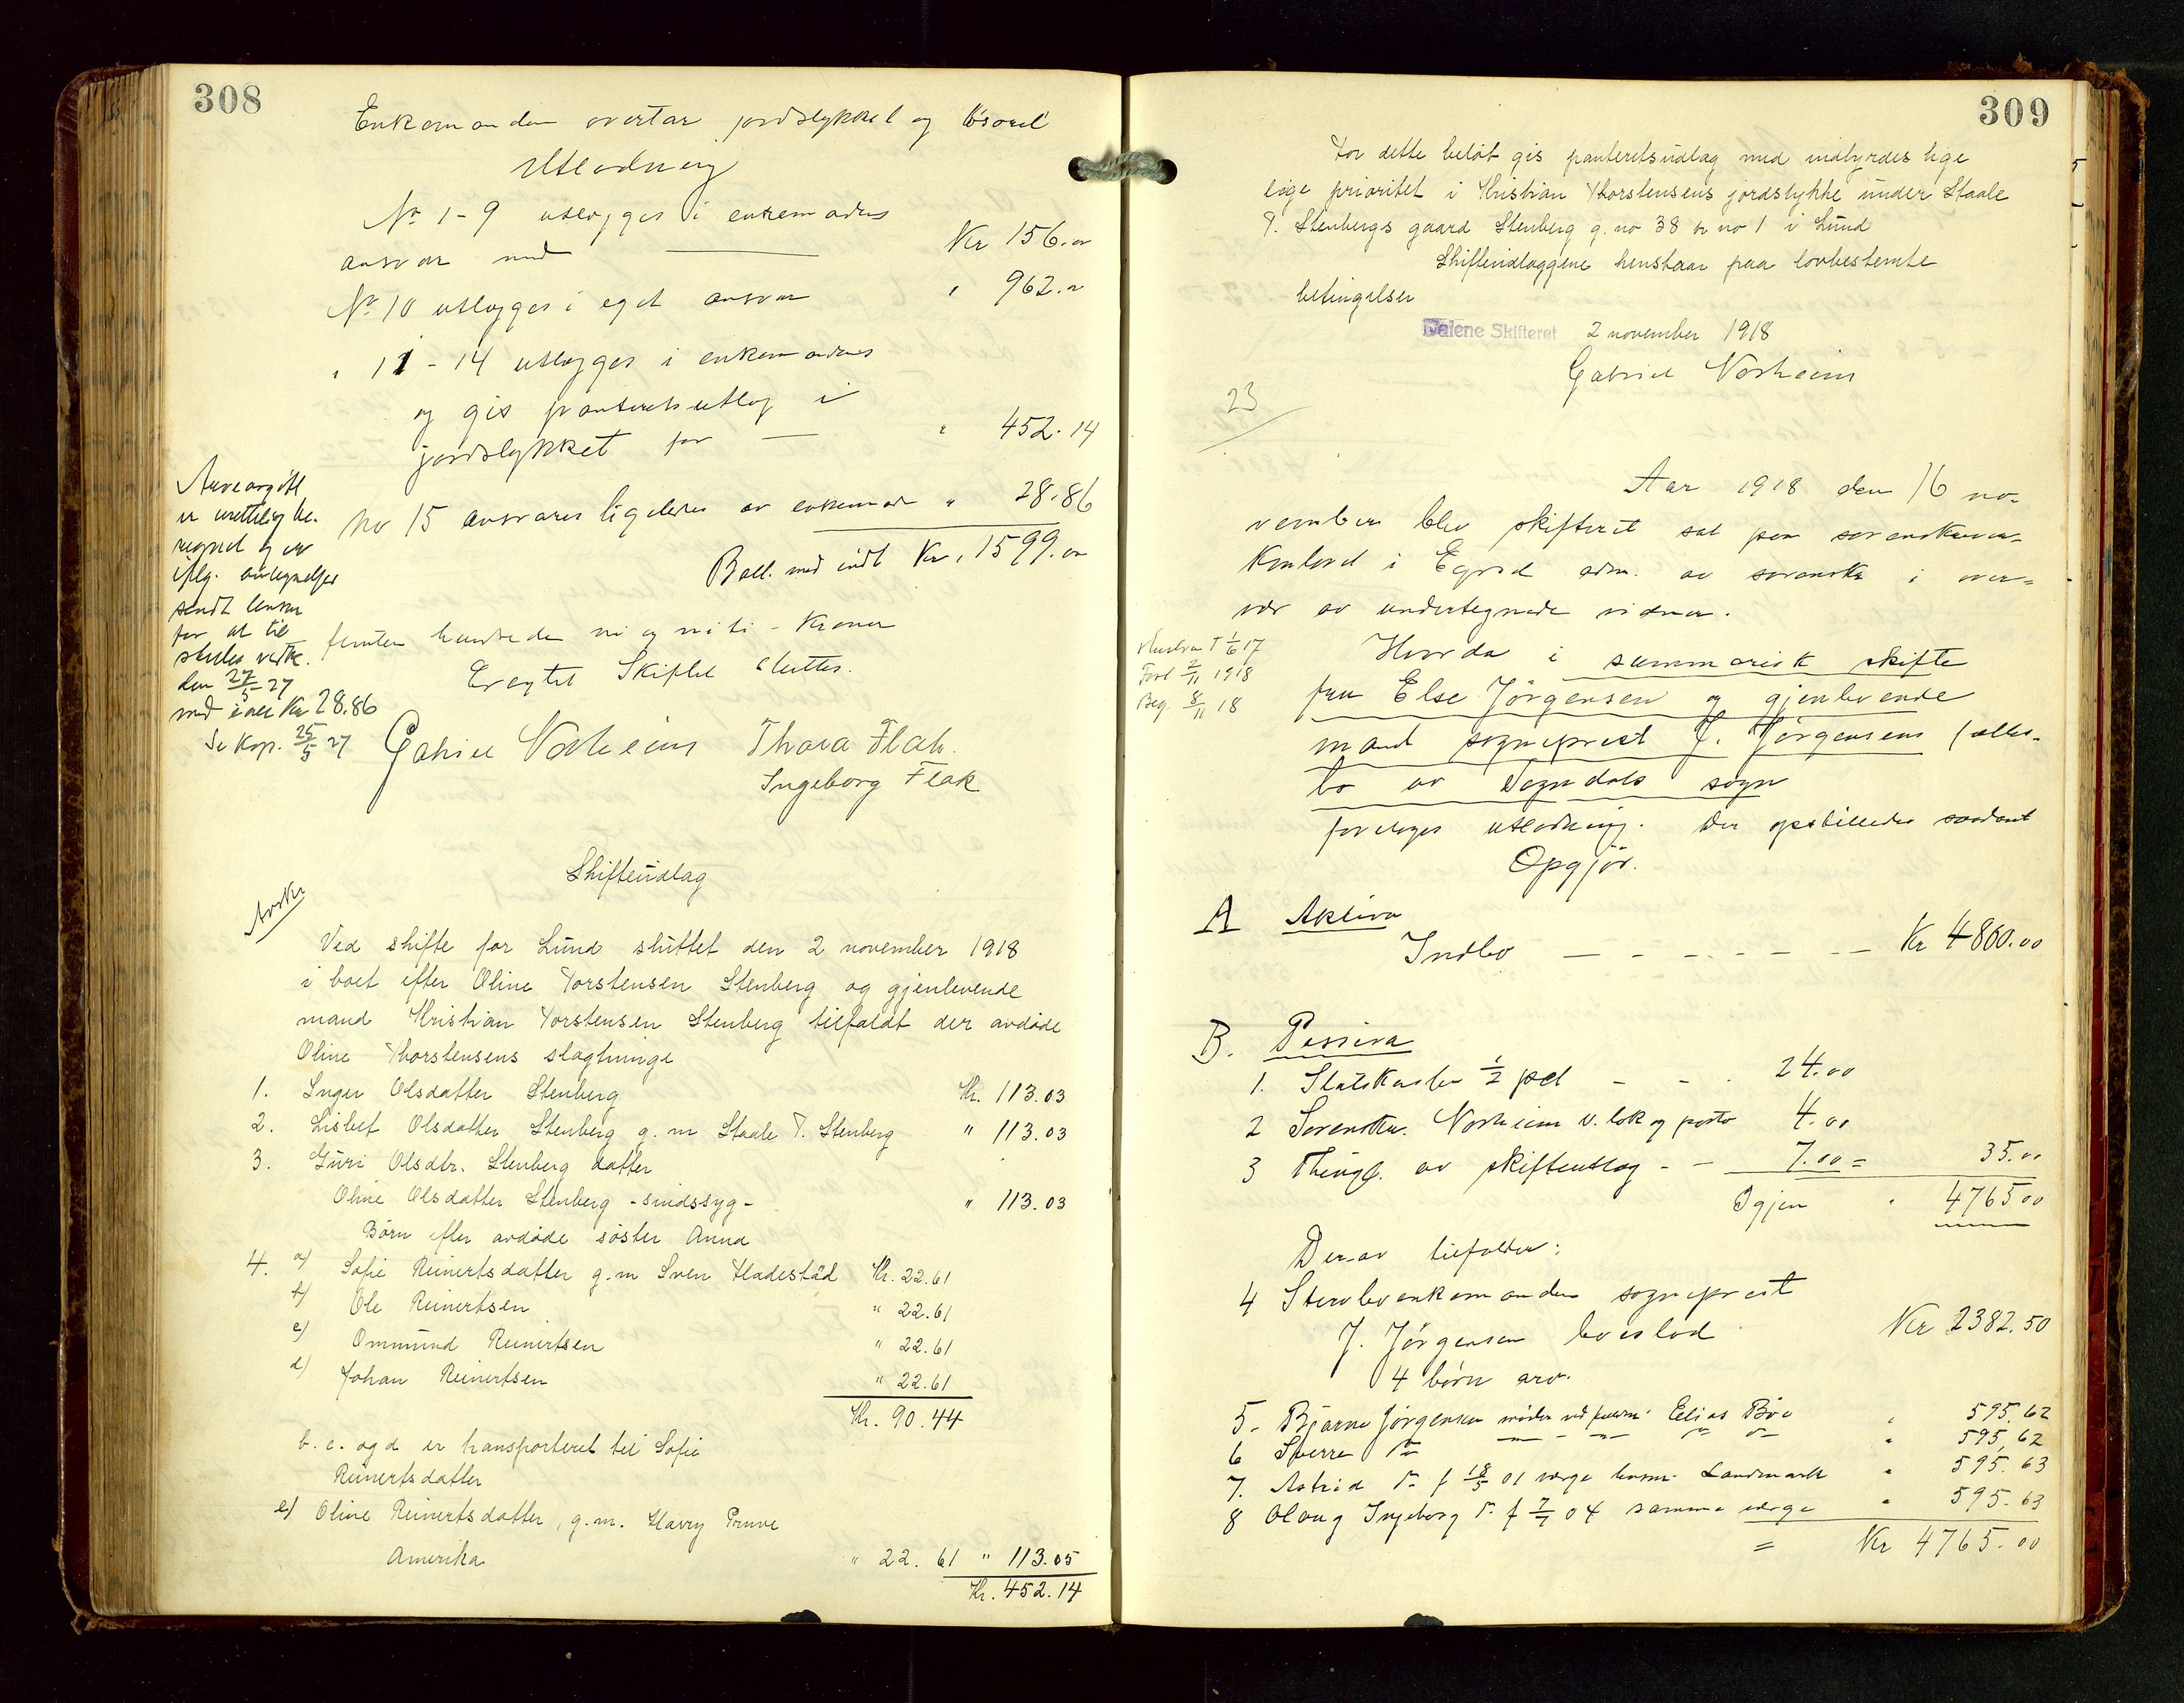 308
Enkemanden overtar jordstykket og lösøret
Utlodning
No 1-9 utlægges i enkemandens
ansvar med Kr 156.00
No 10 utlægges i eget ansvar " 962.00
" 11-14 utlægges i enkemandens
og gis panteretsutlæg i
jordstykket for " 452.14
No 15 ansvares ligeledes av enkemand " 28.86
Ball. med indt Kr. 1599.00
femten hundrede ni og nitti - Kroner
Eragtet Skiftet sluttes.
Gabriel Norheim Thora Flak.
Ingeborg Flak
Arveavgift
er urettelig be-
regnet og er
iflg. antegnelser
sendt lensm
for at til
stilles vedk.
den 27/5-27
med i alt Kr 28.86
Se kop. 25/5 27
Skifteudlæg
Ved skifte for Lund sluttet den 2 november 1918
i boet efter Oline Torstensen Stenberg og gjenlevende
mand Kristian Torstensen Stenberg tilfaldt der avdøde
Oline Thorstensens slagtninge
1. Inger Olsdatter Stenberg Kr. 113.03
2. Lisbet Olsdatter Stenberg g. m Staale T. Stenberg " 113.03
3. Guri Olsdtr. Stenberg datter
Oline Olsdatter Stenberg - sindssyg - " 113.03
Børn efter avdøde søster Anna
4. a) Sofie Reinertsdatter g.m Sven Hadestad Kr. 22.61
b) Ole Reinertsen " 22.61
c) Ommund Reinertsen " 22.61
d) Johan Reinertsen " 22.61
Kr. 90.44
b. c. og d er transporteret til Sofie
Reinertsdatter
e) Oline Reinertsdatter, g.m. Harry Pruve
Amerika " 22.61 " 113.05
Kr. 452.14
309
For dette beløb gis panteretsudlæg med indbyrdes lige
lige prioritet i Kristian Thorstensens jordstykke under Staale
T. Stenbergs gaard Stenberg g. no 38 br no 1 i Lund
Skifteudlæggene henstaar paa lovbestemte
betingelser
Dalene Skifteret 2 november 1918
Gabriel Norheim
23
Aar 1918 den 16 no-
vember blev skifteret sat paa sorenskriver-
kontoret i Egersd adm. av sorenskr i over-
vær av undertegnede vidner.
Hustru † 1/6 17
Forl 2/11 1918
Beg. 8/11 18
Hvorda i summarisk skifte
fru Else Jørgensen og gjenlevende
mand sogneprest J. Jørgensens fælles-
bo av Sogndals sogn
foretoges utlodning. Der opstilledes saadant
Opgjør.
A Aktiva
Indbo Kr 4800.00
B. Passiva
1. Statskassen 1/2 pct 24.00
2 Sorenskr. Norheim v. lok og porto 4.00
3 Thingl. av skifteutlæg - - 7.00 = 35.00
Igjen " 4765 00
Derav tilfalder:
4 Stervboenkemanden sogneprest
J. Jørgensen boeslod Kr 2382.50
4 børn arv.
5. Bjarne Jørgensen Elias Bøe " 595.62
6 Sverre do " 595.62
7. Astrid do f 18/5 01 værge Landmark " 595.63
8 Olaug Ingeborg do f 7/7 04 samme værge " 595.63
= Kr 4765.00